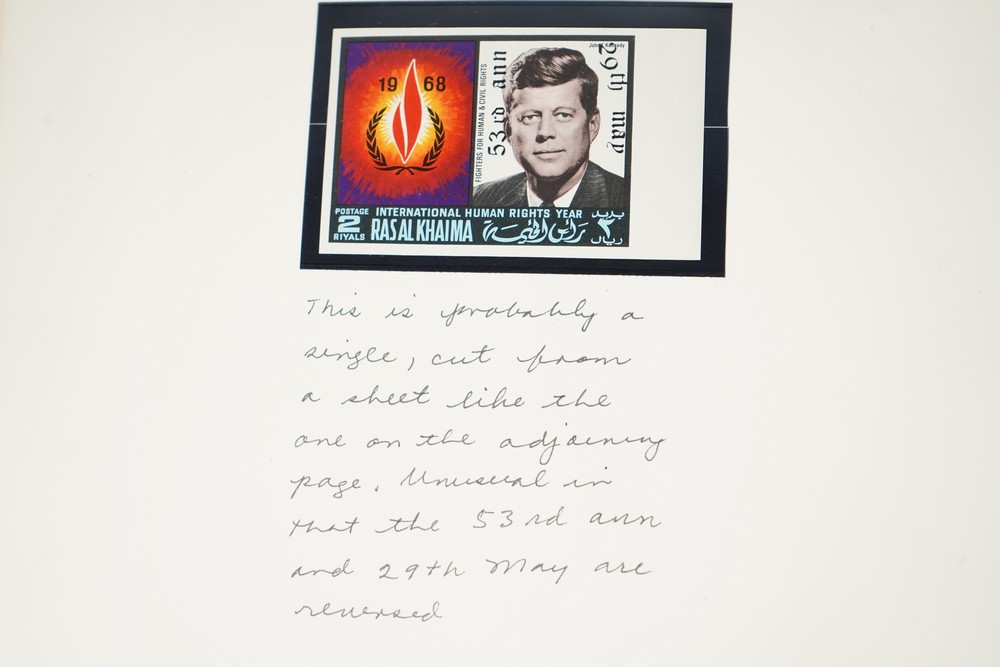 1968
FIGHTERS FOR HUMAN & CIVIL RIGHTS
53rd ann
John F. Kennedy
29th may
POSTAGE
2
RIYALS
INTERNATIONAL HUMAN RIGHTS YEAR
RAS AL KHAIMA
رأس الخيمة
بريد
٢
ريال
This is probably a
single, cut from
a sheet like the
one on the adjoining
page. Unusual in
that the 53rd ann
and 29th May are
reversed